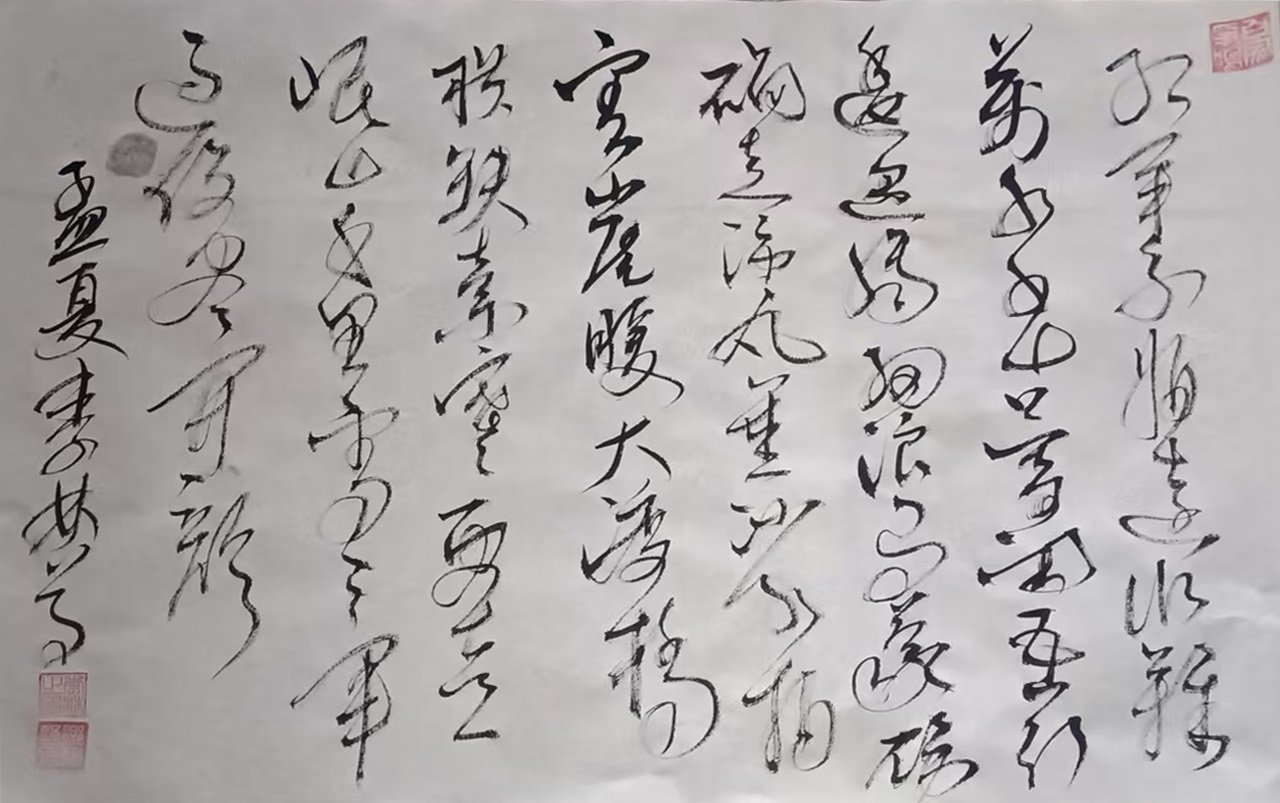 红軍不怕遠征難
萬水千山只等闲五岭
逶迤腾细浪乌蒙磅
礴走泥丸金沙水拍
雲崖暖大渡橋
横鐵索寒更喜
岷山千里雪三軍
過後尽开颜
孟夏李